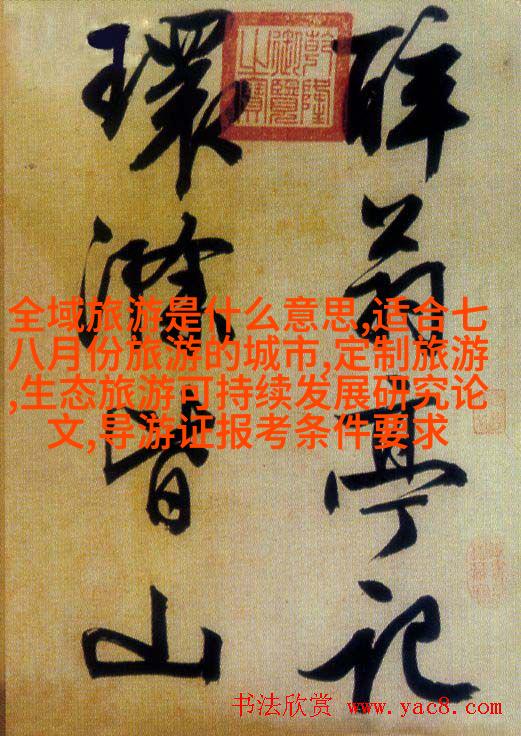 醉翁亭记
環滁皆山
乾隆御覽之寶
全域旅游是什么意思,适合七
八月份旅游的城市,定制旅游
,生态旅游可持续发展研究论
文,导游证报考条件要求
书法欣赏 www.yac8.com